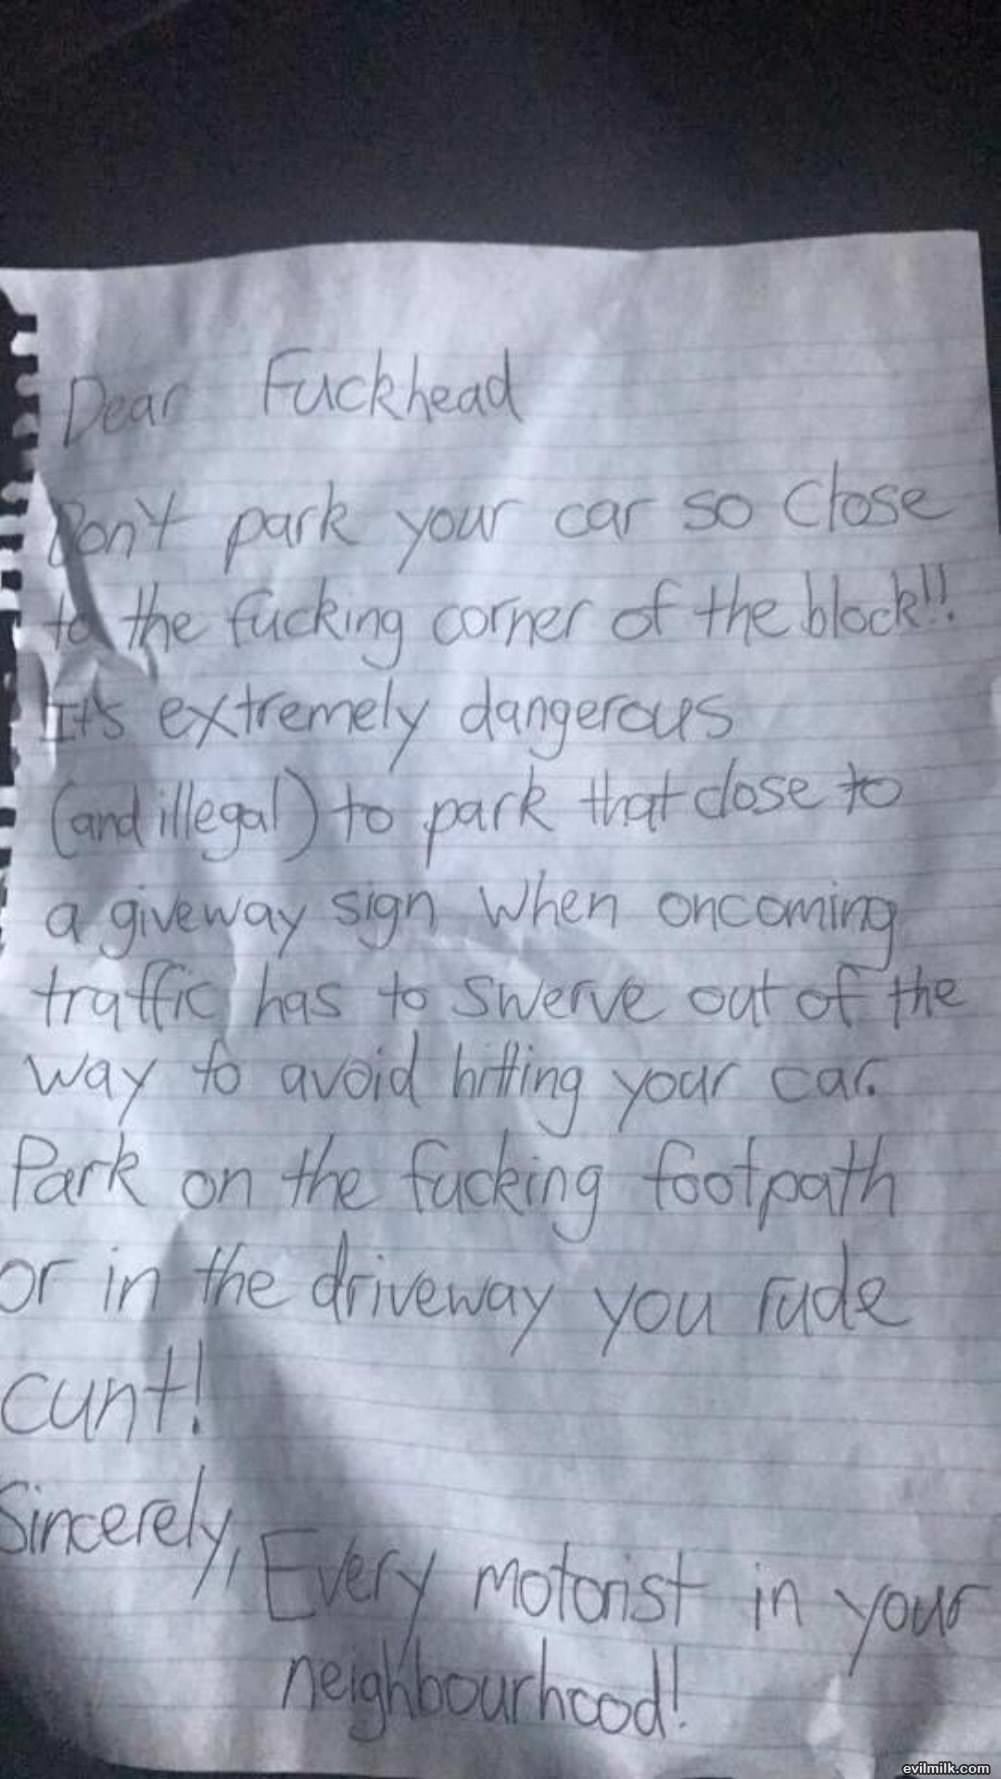 Dear Fuckhead
Don't park your car so close
to the fucking corner of the block!!
It's extremely dangerous
(and illegal) to park that close to
a giveway sign when oncoming
traffic has to swerve out of the
way to avoid hitting your car.
Park on the fucking footpath
or in the driveway you rude
cunt!
Sincerely,
Every motorist in your
neighbourhood!
evilmilk.com